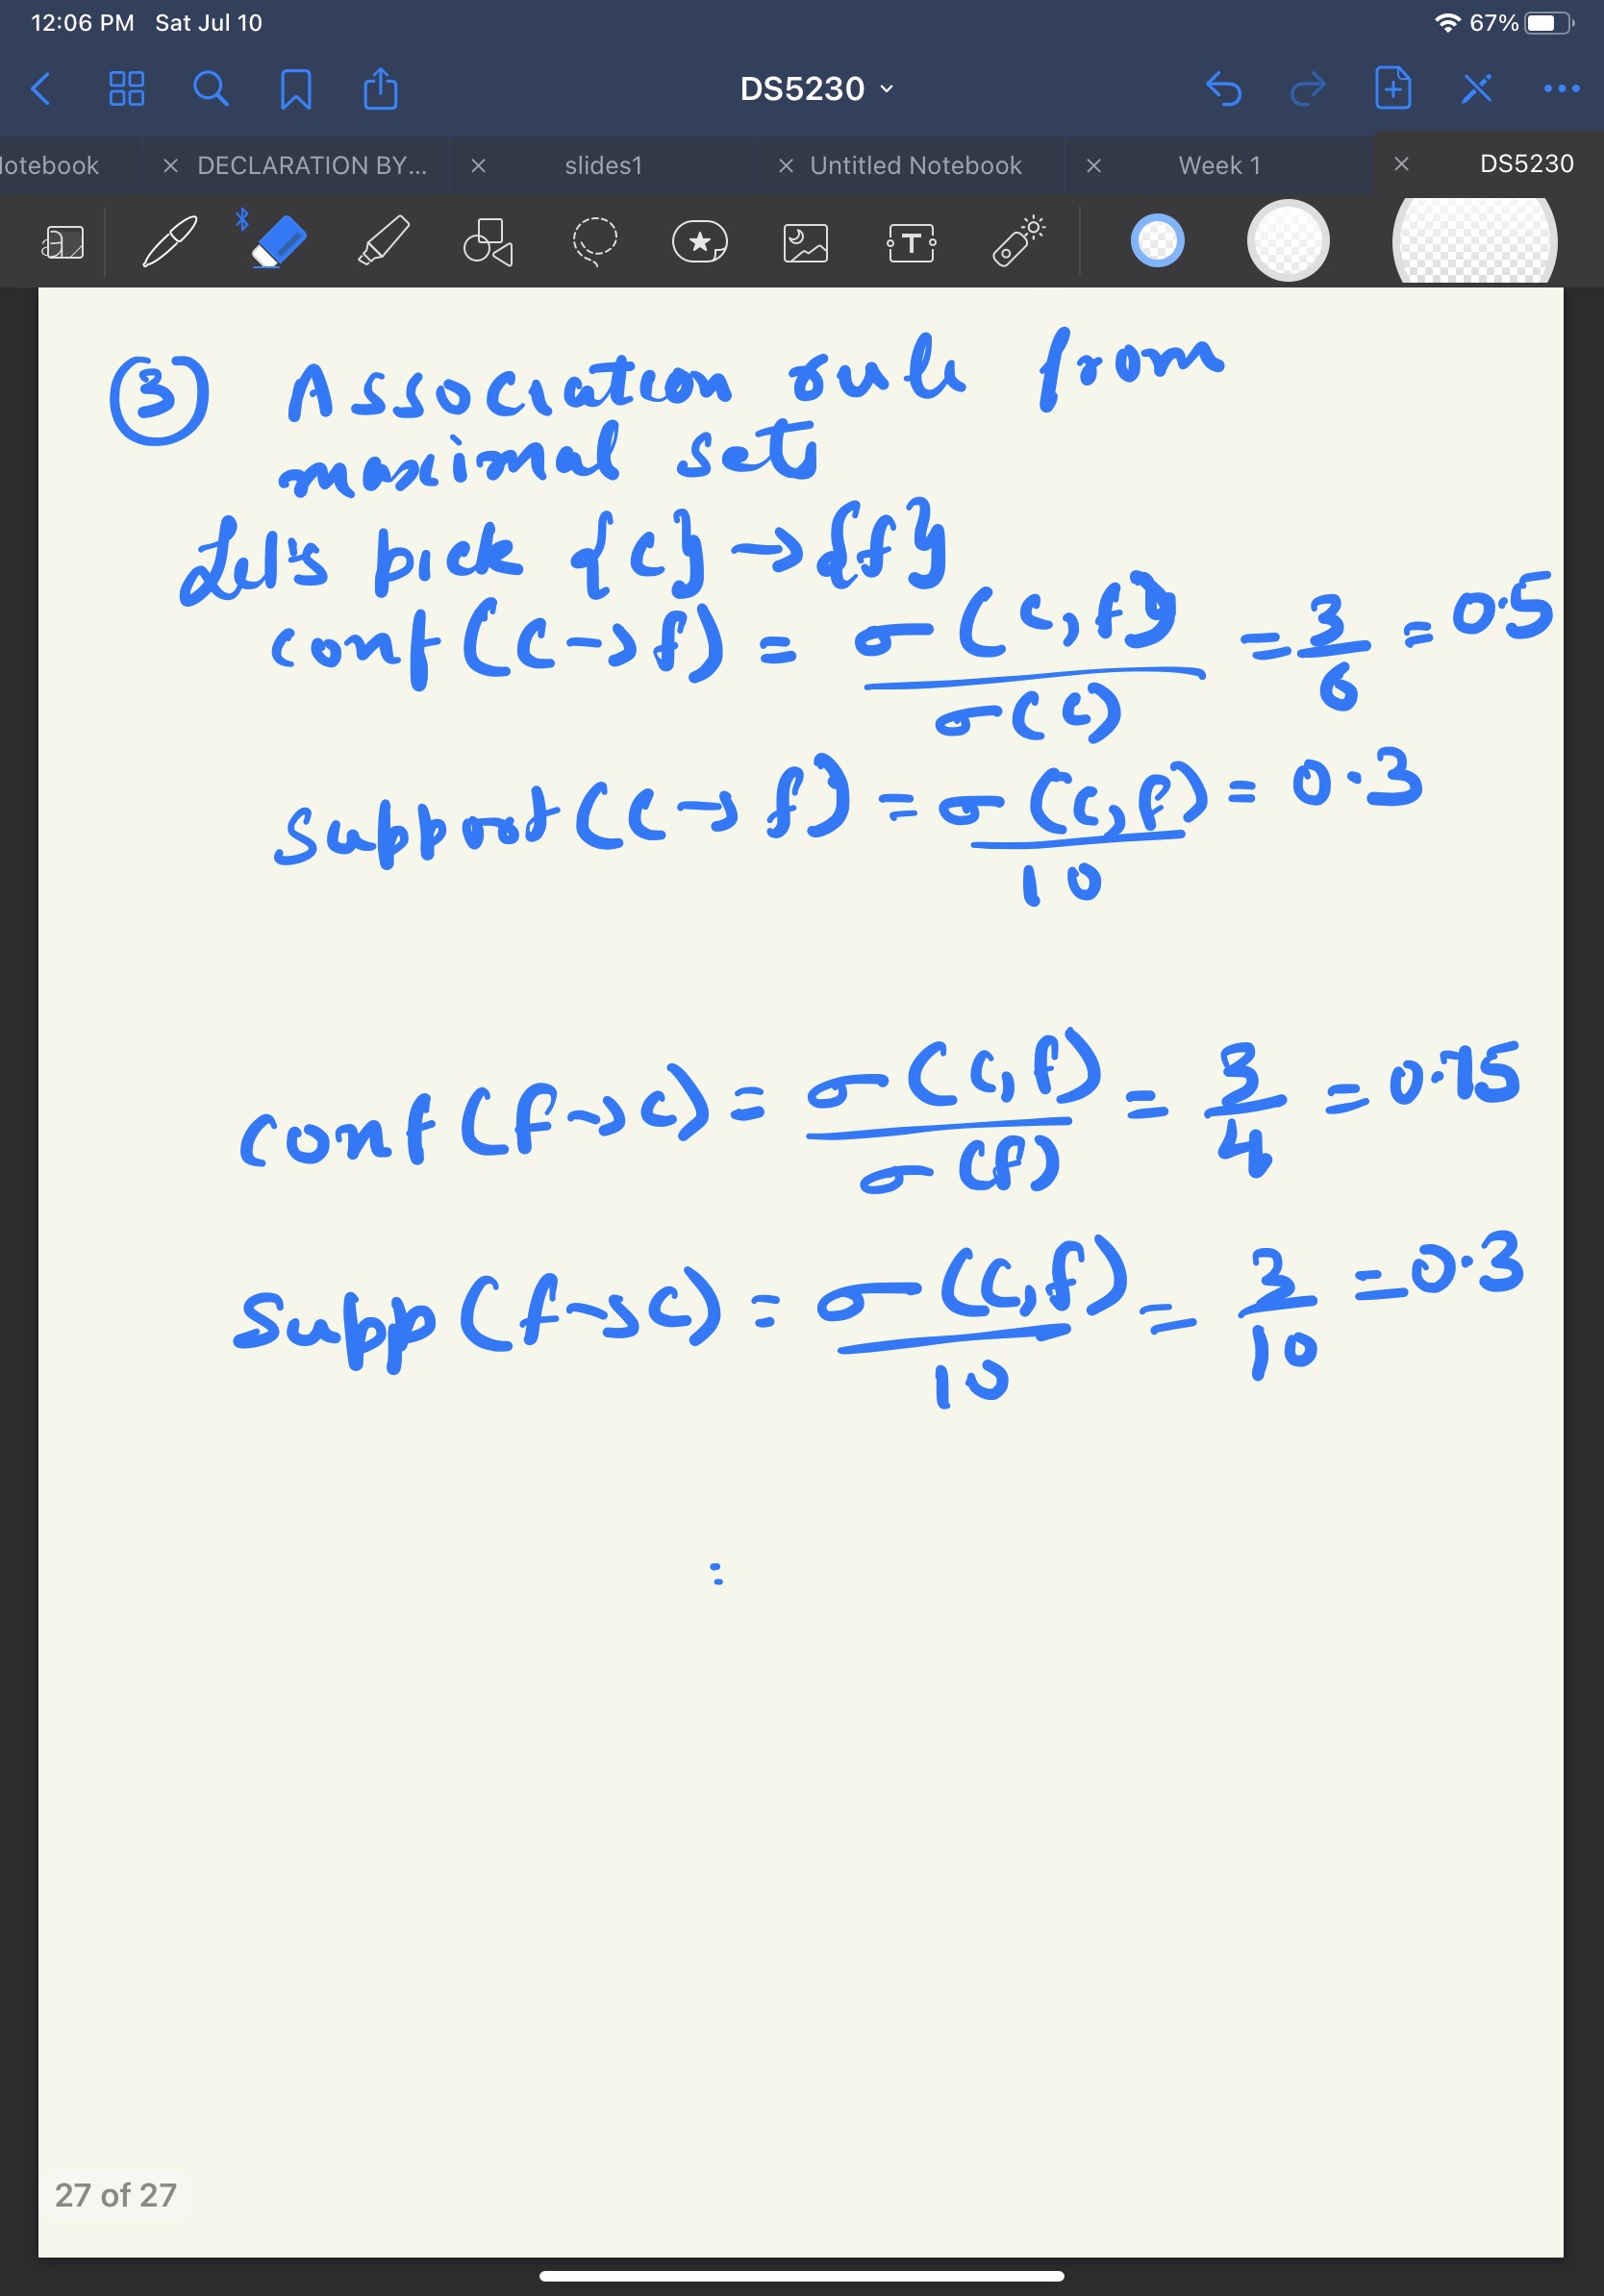 12:06 PM Sat Jul 10 67%
DS5230
lotebook DECLARATION BY... slides1 Untitled Notebook Week 1 DS5230
T
③ Association rule from
maximal sets
Let's pick {c} → {f}
conf(c→f) = σ(c,f) / σ(c) = 3/6 = 0.5
Support(c→f) = σ(c,f) / 10 = 0.3
conf(f→c) = σ(c,f) / σ(f) = 3/4 = 0.75
Supp(f→c) = σ(c,f) / 10 = 3/10 = 0.3
:
27 of 27